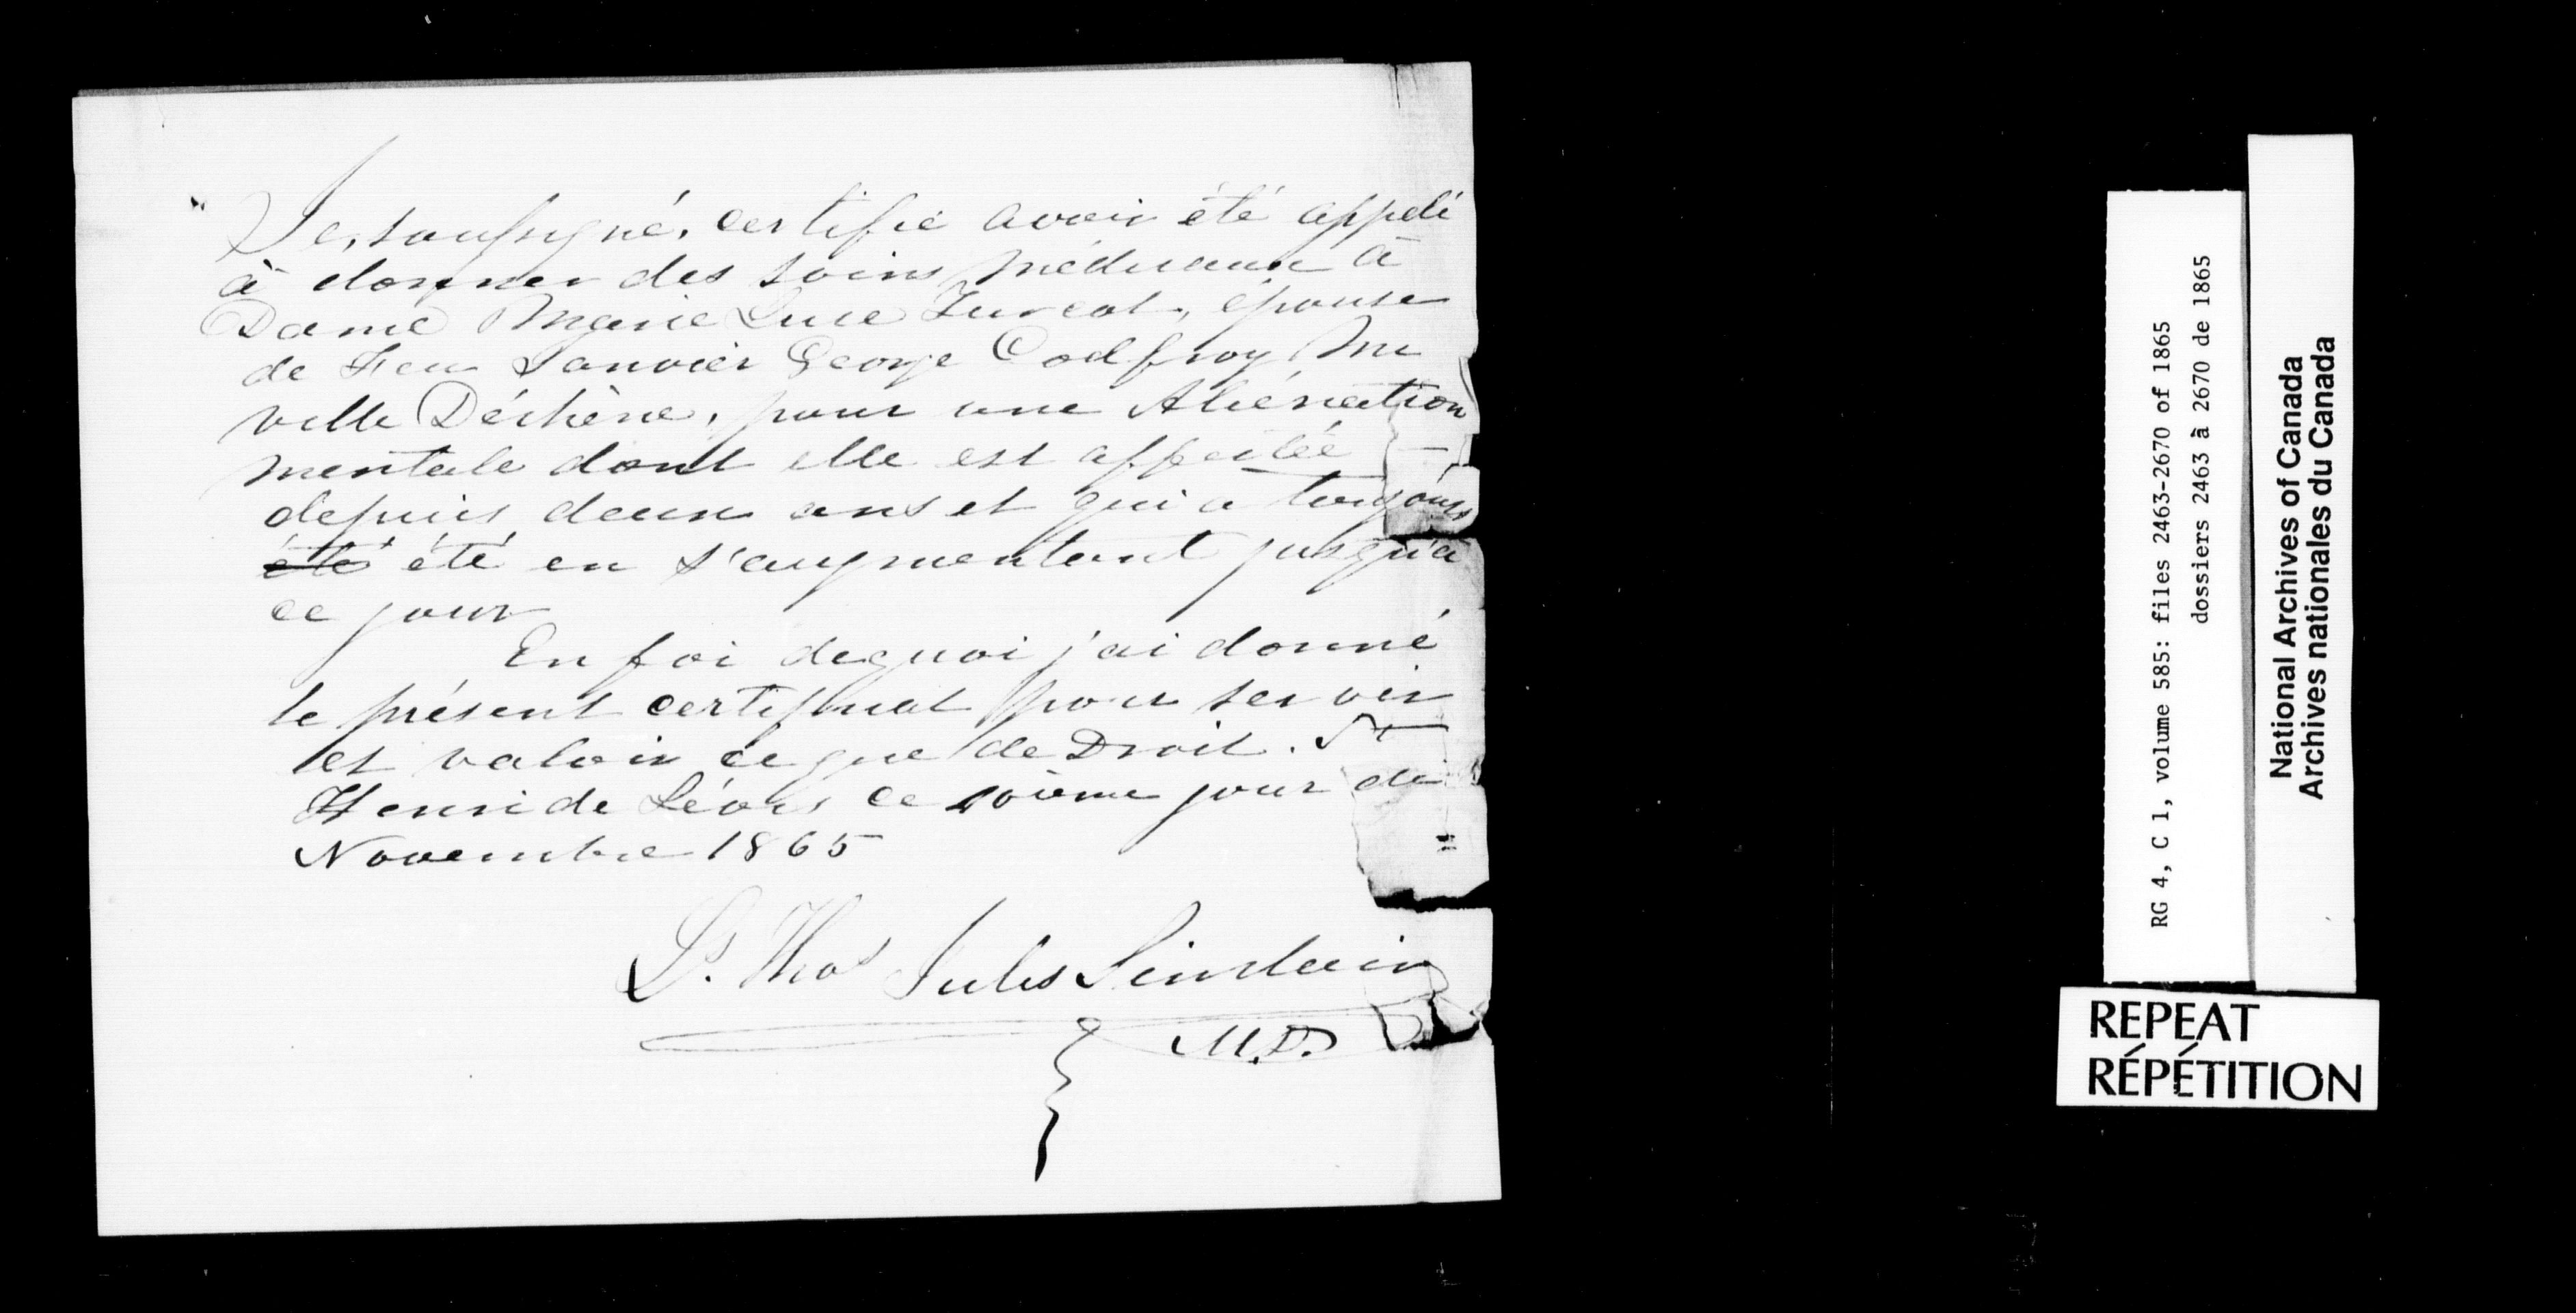 Je, soussigné, certifie avoir été appelé
à donner des soins médicaux à
Dame Marie Luce Turcot, épouse
de Feu Janvier George Godfroy Mi
ville Déchène, pour une Aliénation
mentale dont elle est affectée
depuis deux ans et qui a toujours
été été en s'augmentant jusqu'à
ce jour
En foi dequoi j'ai donné
le présent certificat pour servir
et valoir ce que de Droit. St
Henri de Lévis ce jour de
Novembre 1865
Ls. Thos Jules Sinclair
M.D.
RG 4, C 1, volume 585: files 2463-2670 of 1865
dossiers 2463 à 2670 de 1865
National Archives of Canada
Archives nationales du Canada
REPEAT
RÉPÉTITION